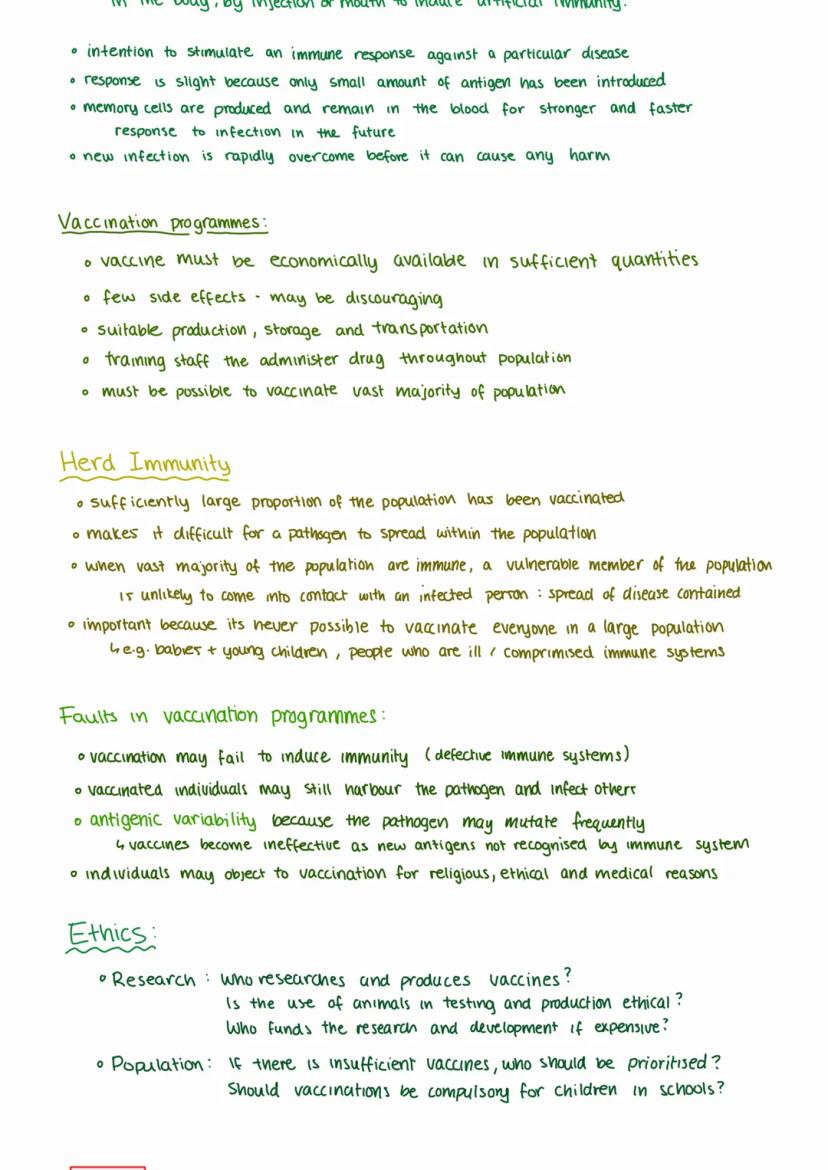 in the body, by injection or mouth to induce artificial immunity.
• intention to stimulate an immune response against a particular disease
• response is slight because only small amount of antigen has been introduced
• memory cells are produced and remain in the blood for stronger and faster
response to infection in the future
• new infection is rapidly overcome before it can cause any harm
Vaccination programmes:
• vaccine must be economically available in sufficient quantities
• few side effects - may be discouraging
• suitable production, storage and transportation
• training staff the administer drug throughout population
• must be possible to vaccinate vast majority of population
Herd Immunity
• sufficiently large proportion of the population has been vaccinated
• makes it difficult for a pathogen to spread within the population
• when vast majority of the population are immune, a vulnerable member of the population
is unlikely to come into contact with an infected person : spread of disease contained
• important because its never possible to vaccinate everyone in a large population
↳ e.g. babies + young children, people who are ill / comprimised immune systems
Faults in vaccination programmes:
• vaccination may fail to induce immunity (defective immune systems)
• vaccinated individuals may still harbour the pathogen and infect others
• antigenic variability because the pathogen may mutate frequently
↳ vaccines become ineffective as new antigens not recognised by immune system
• individuals may object to vaccination for religious, ethical and medical reasons
Ethics:
• Research : Who researches and produces vaccines?
Is the use of animals in testing and production ethical?
Who funds the research and development if expensive?
• Population: If there is insufficient vaccines, who should be prioritised?
Should vaccinations be compulsory for children in schools?